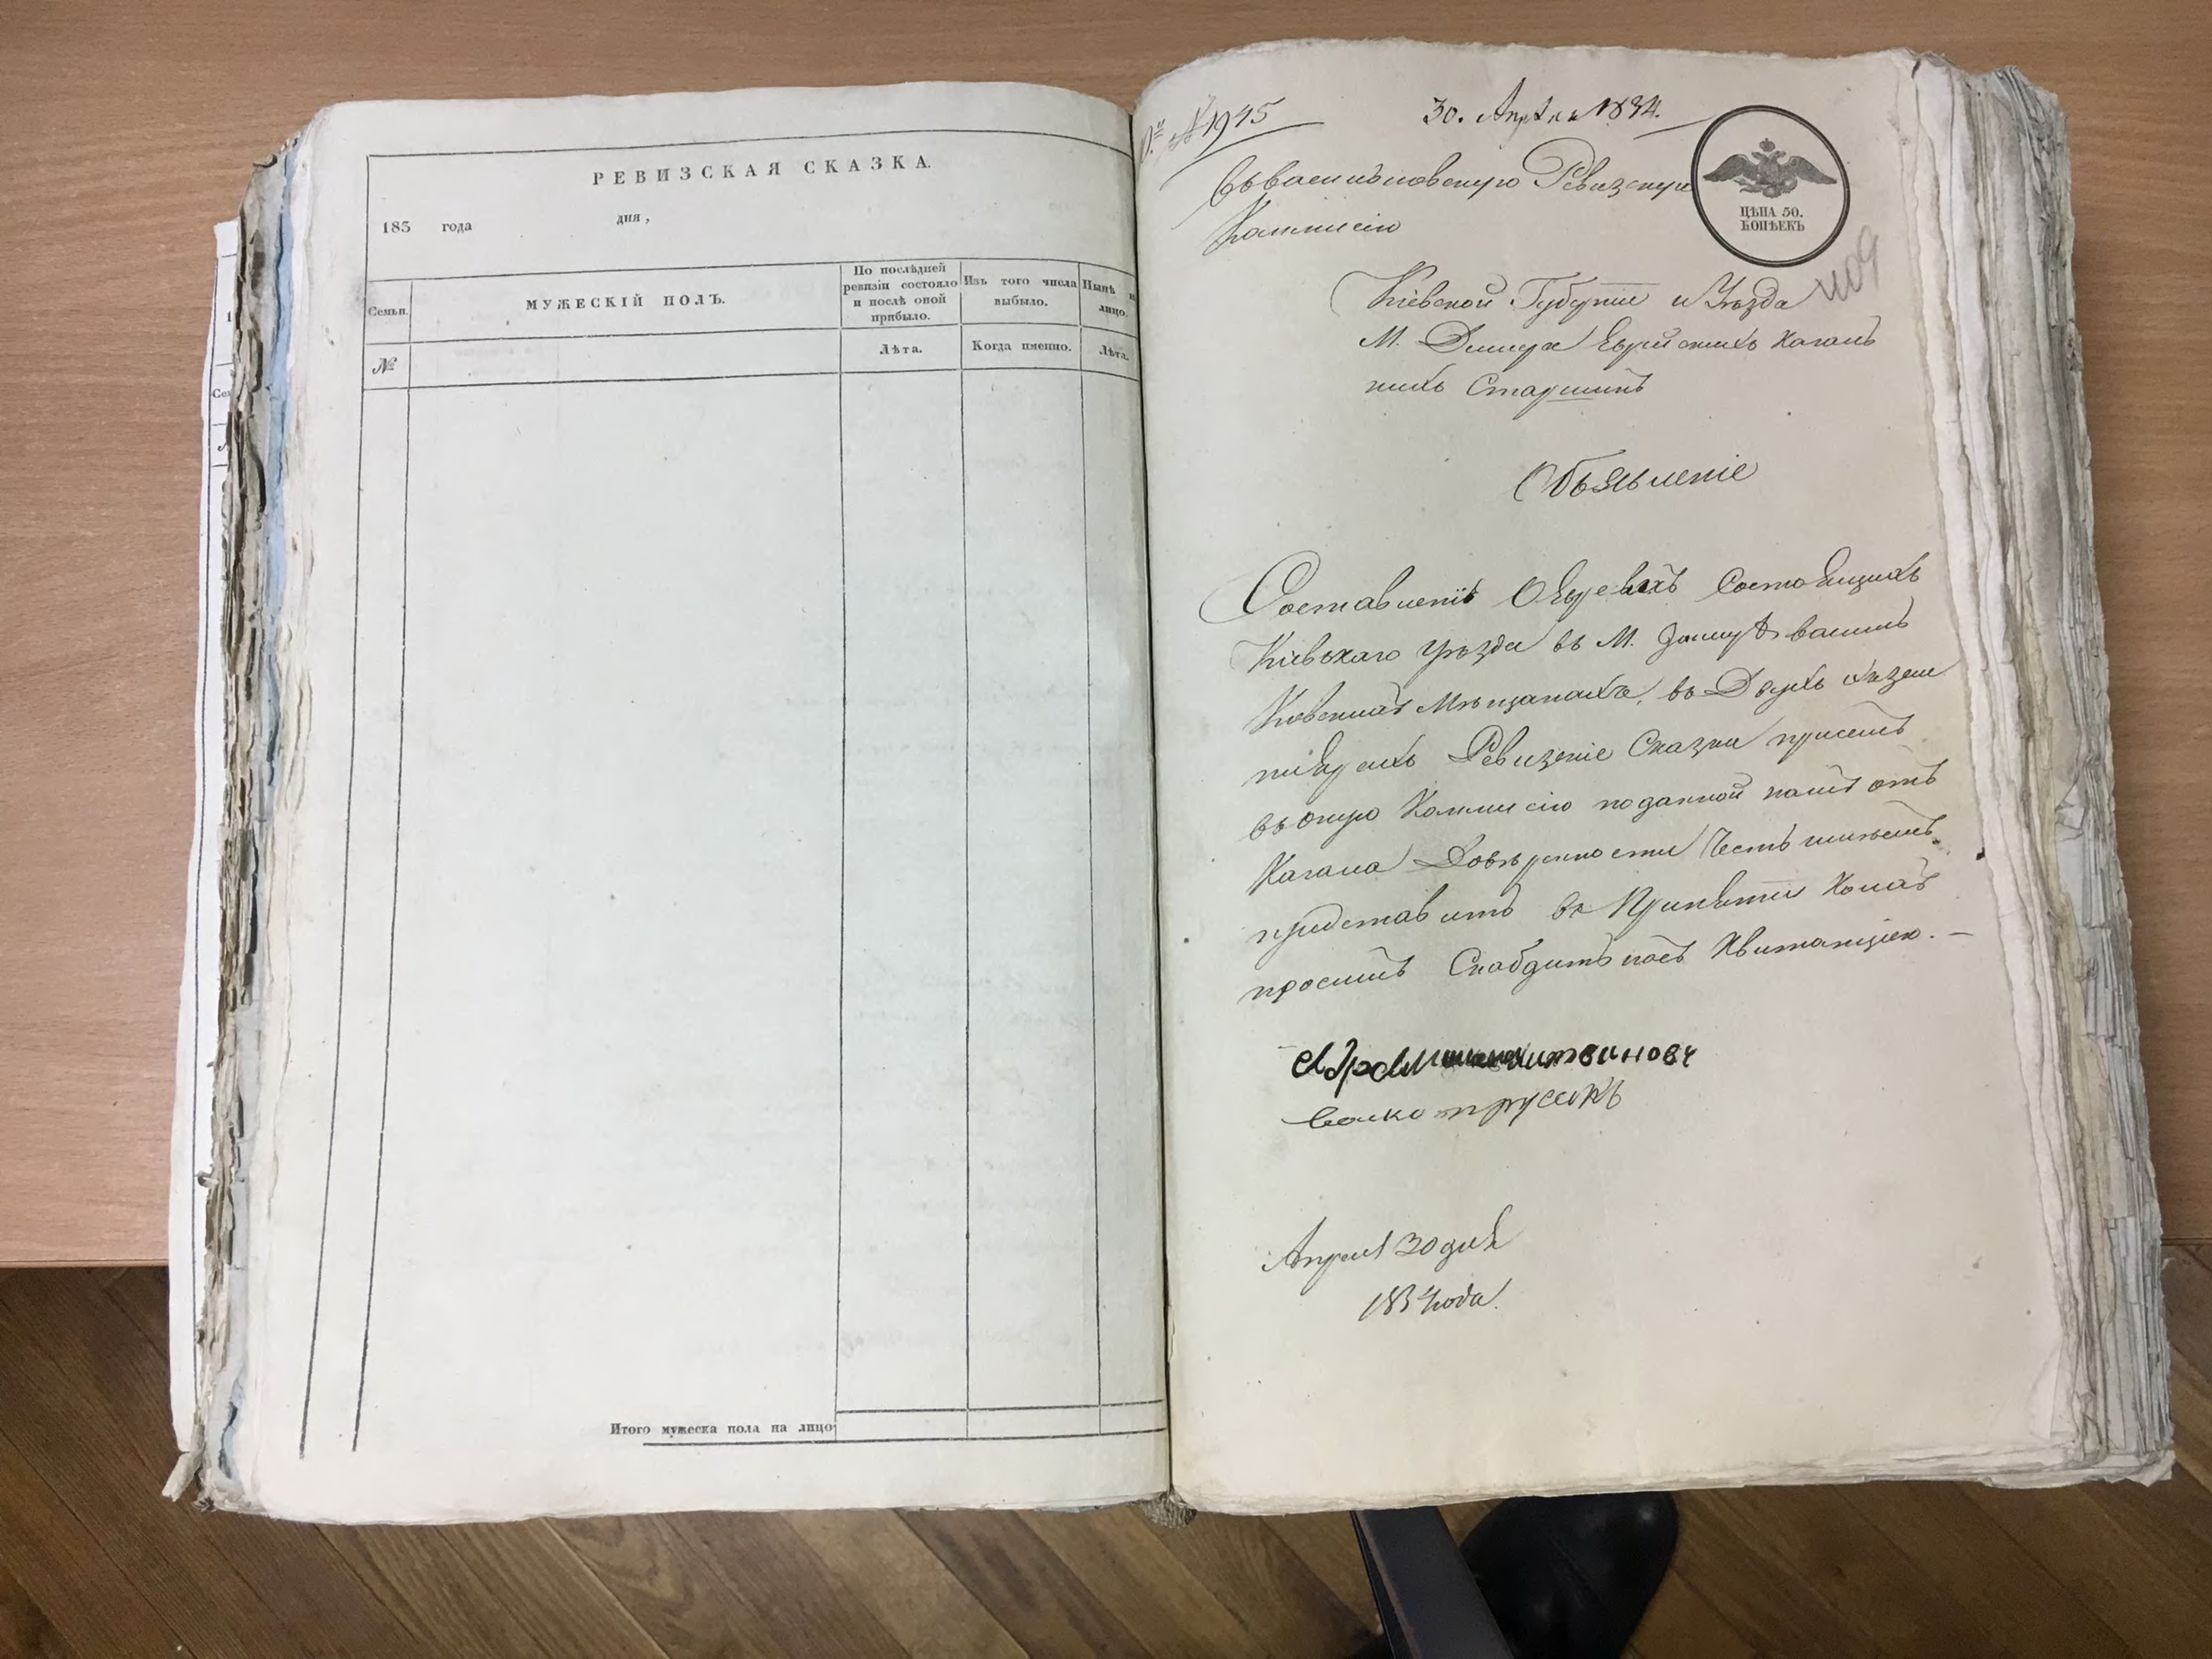 РЕВИЗСКАЯ СКАЗКА.
183 года дня,
Семьи.
МУЖЕСКІЙ ПОЛЪ.
По послѣдней ревизіи состояло и послѣ оной прибыло.
Изъ того числа выбыло.
Нынѣ лицо.
№
Лѣта.
Когда именно.
Лѣта.
Итого мужеска пола на лицо
№ 1945
30. Апрѣля 1834.
ЦѢНА 50.
КОПѢЕКЪ
409
Въ Васильковскую Ревизскую
Коммисію
Кіевской Губерніи и Уѣзда
М. Димера Еврейскихъ Кагаль
ныхъ Старшинъ
Объявленіе
Составленіе О Евреевъхъ Состоящихъ
Кіевскаго Уѣзда въ М. Димерѣ василь
Ковскихъ Мѣщанахъ, въ Двухъ Экзем
плярахъ Ревизскіе Сказки присемъ
въ оную Коммисію поданной намъ отъ
Кагала Довѣренности Честь имѣемъ
представить въ Принятіи Коихъ
просимъ Снабдить насъ Квитанціею. —
литвинович
Апреля 30 дня
1834 года.